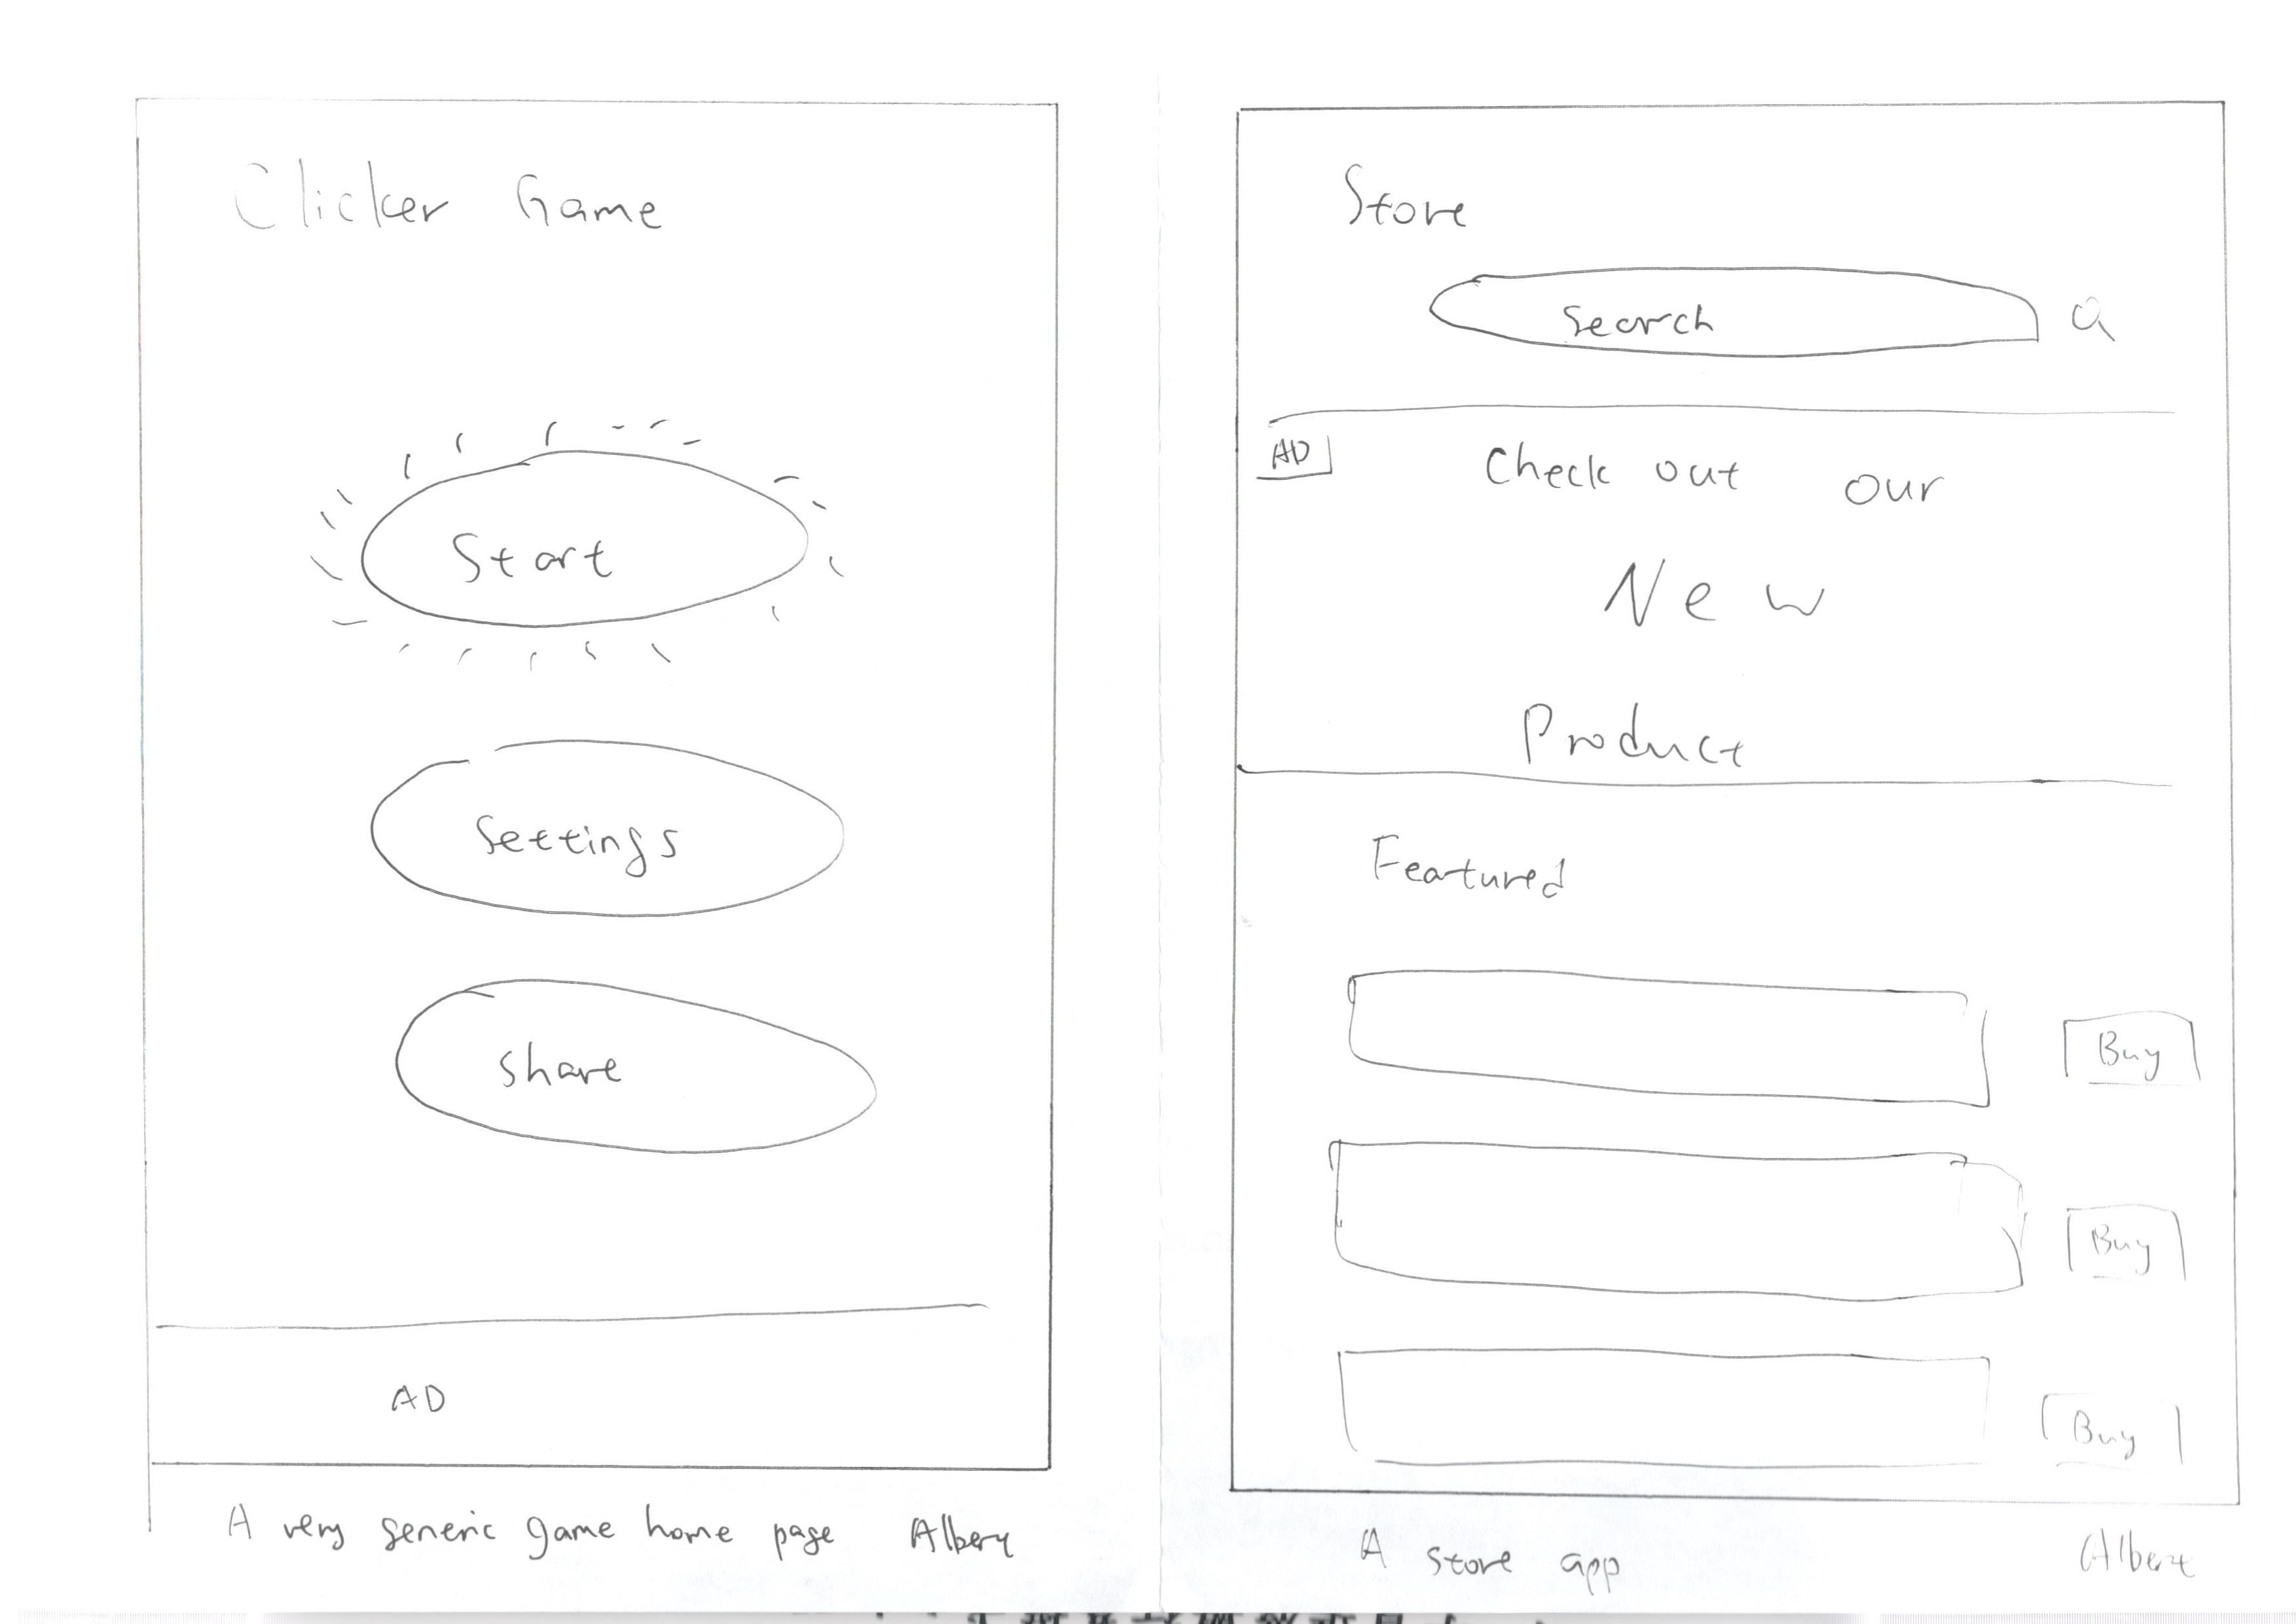 Clicker Game
Start
Settings
share
AD
A very generic game home page Albert
Store
Search
AD
Check out our
New
Product
Featured
Buy
Buy
Buy
A store app
Albert